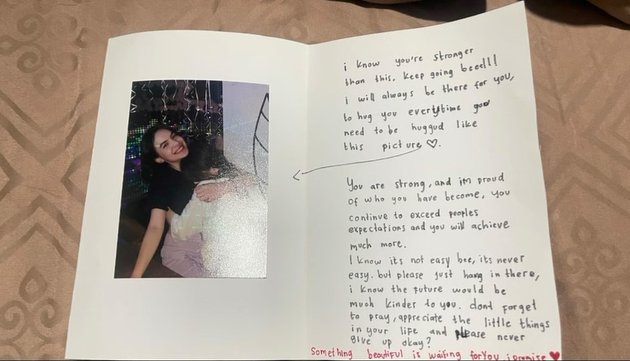 i know you're stronger
than this, keep going beee!!!
i will always be there for you,
to hug you everytime you
need to be huggud like
this picture ♡.
You are strong, and i'm proud
of who you have become, you
continue to exceed peoples
expectations and you will achieve
much more.
I know its not easy bee, its never
easy. but please just hang in there,
i know the future would be
much kinder to you. dont forget
to pray, appreciate the little things
in your life and please never
give up okay?
Something beautiful is waiting for you i promise ♥